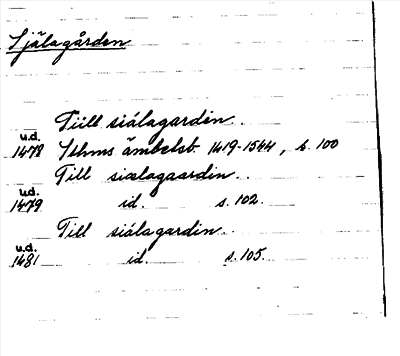 Själagården
Tiill siälagarden..
u.d.
1478 Sthms ämbetsb. 1419-1544, s. 100
Till siælagaardin..
u.d.
1479 id. s. 102.
Till siälagardin..
u.d.
1481 id. s. 105.